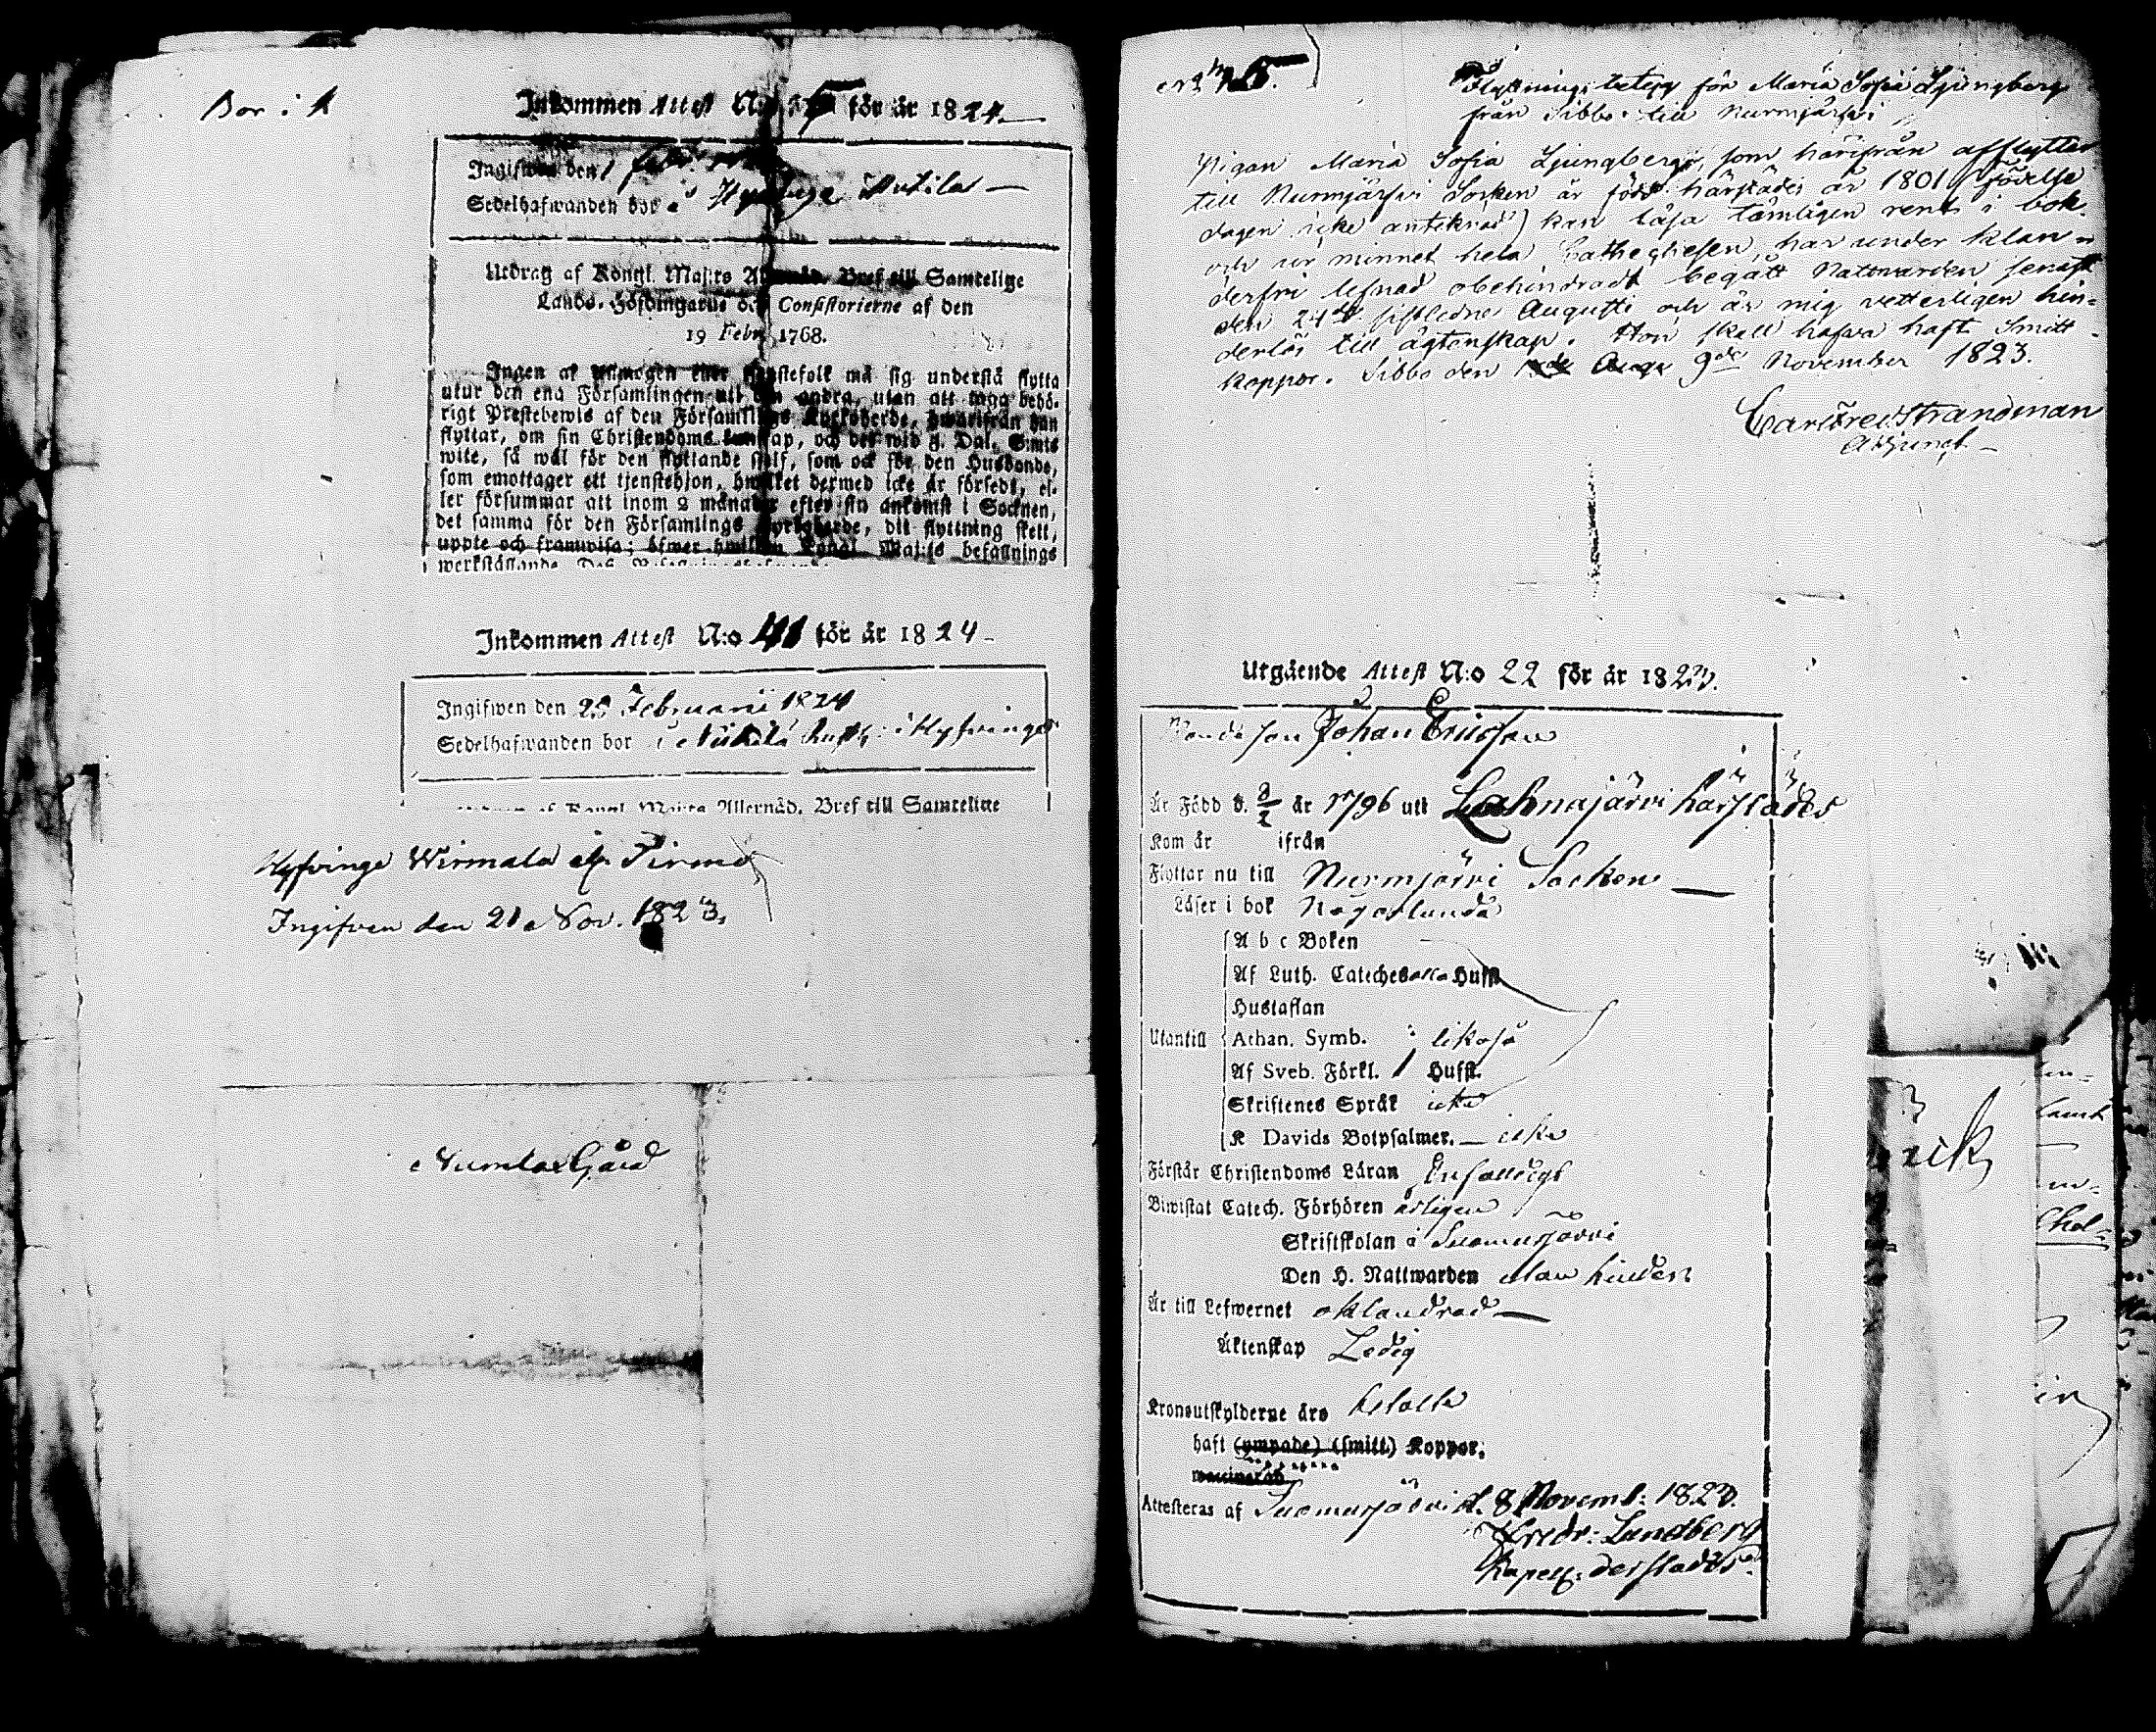 Bor i
Inkommen Attest N:o 5 för år 1824.
Ingifwen den 1 Febr.
Sedelhafwanden bor i Hyvinge
Utdrag af Kongl. Maj:ts Allernåd. Bref till Samtelige
Lands-Höfdingarne och Consistorierne af den
19 Febr. 1768.
Ingen af Allmogen eller tjenstefolk må sig understå flytta
utur den ena Församlingen till den andra, utan att taga behö-
rigt Prestebewis af den Församlings Kyrkoherde, hwarifrån han
flyttar, om sin Christendoms kunskap, och det wid 3. Dal. S:mts
wite, så wäl för den flyttande sjelf, som ock för den Husbonde,
som emottager ett tjenstehjon, hwilket dermed icke är försedt, el-
ler försummar att inom 2 månader efter sin ankomst i Socknen,
det samma för den Församlings Kyrkoherde, dit flyttning skett,
uppte och framwisa; öfwer hwilken Kongl. Maj:ts befallnings
werkställande
Inkommen Attest N:o 41 för år 1824
Ingifwen den 28 Februarii 1824
Sedelhafwanden bor i Nukala i Hyfvinge
Utdrag af Kongl. Maj:ts Allernåd. Bref till Samtelige
Hyfvinge Wirmala
Ingifven den 21 Nov. 1823.
Numlax Gård
N 5.
Flyttnings betyg för Maria Sofia Ljungberg
från Sibbo till Nurmjärfvi
Pigan Maria Sofia Ljungberg, som härifrån afflyttar
till Nurmjärfvi Socken är född härstädes år 1801 (födelse
dagen icke antecknad) kan läsa tämligen rent i bok
och ur minnet hela Cathechesen, har under klan-
derfri lefnad obehindradt begått Nattvarden senast
den 24de sistledne Augusti och är mig vetterligen hin-
derlös till ägtenskap. Hon skall hafva haft Smitt
koppor. Sibbo den 9de November 1823.
Carl Fred Strandman
Adjunct
Utgående Attest N:o 22 för år 1823.
Bonde son Johan Ericsson
Är Född d. 8/2 år 1796 uti Lahnajärvi härstädes
Kom år ifrån
Flyttar nu till Nurmjärvi Socken
Läser i bok Någorlunda
A b c Boken
Af Luth. Cateches alla Hufst.
Hustaflan
Utantill Athan. Symb. likaså
Af Sveb. Förkl. 1 Hufst.
Skriftenes Språk icke
K Davids Botpsalmer. icke
Förstår Christendoms Läran Enfalldigt
Biwistat Catech. Förhören årligen
Skriftskolan i Suomusjärvi
Den H. Nattwarden utan hinder
Är till Lefwernet oklandrad
Äktenskap Ledig
Kronoutskylderne äro betalte
haft (ympade) (smitt) Koppor.
waccinerad
Attesteras af Suomusjärvi d. 8 Novemb: 1823.
Fredr: Lundberg
Kapell: derstädes.